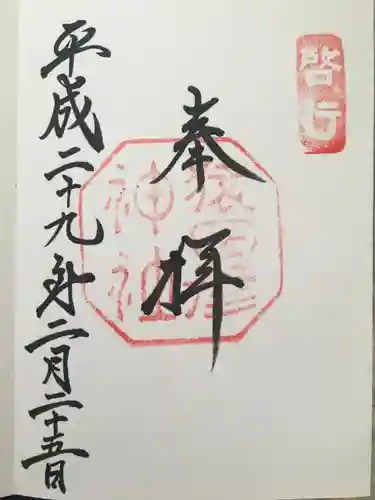 啓行
奉拝
猿賀神社
平成二十九年二月二十五日